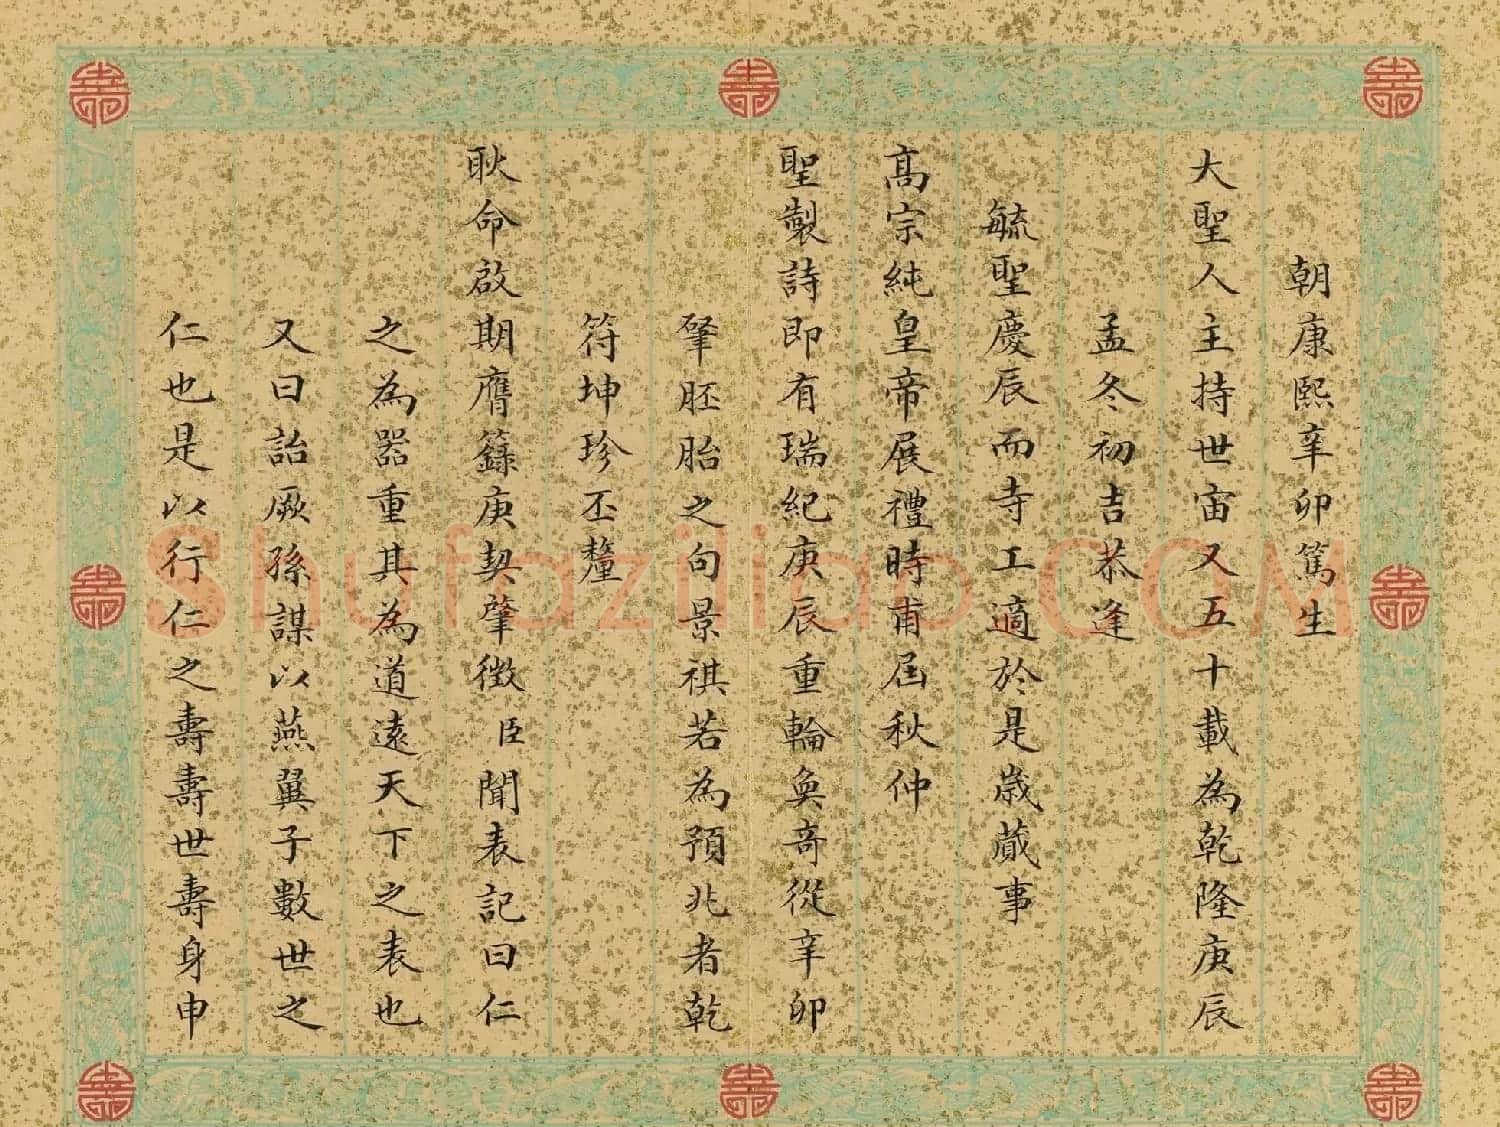 朝康熙辛卯篤生
大聖人主持世宙又五十載為乾隆庚辰
孟冬初吉恭逢
毓聖慶辰而寺工適於是歲蕆事
高宗純皇帝展禮時甫屆秋仲
聖製詩即有瑞紀庚辰重輪奐奇從辛卯
肇胚胎之句景祺若為預兆者乾
符坤珍丕釐
耿命啟期膺籙庚契肇徵臣聞表記曰仁
之為器重其為道遠天下之表也
又曰詒厥孫謀以燕翼子數世之
仁也是以行仁之壽壽世壽身申
Shufaziliao.COM